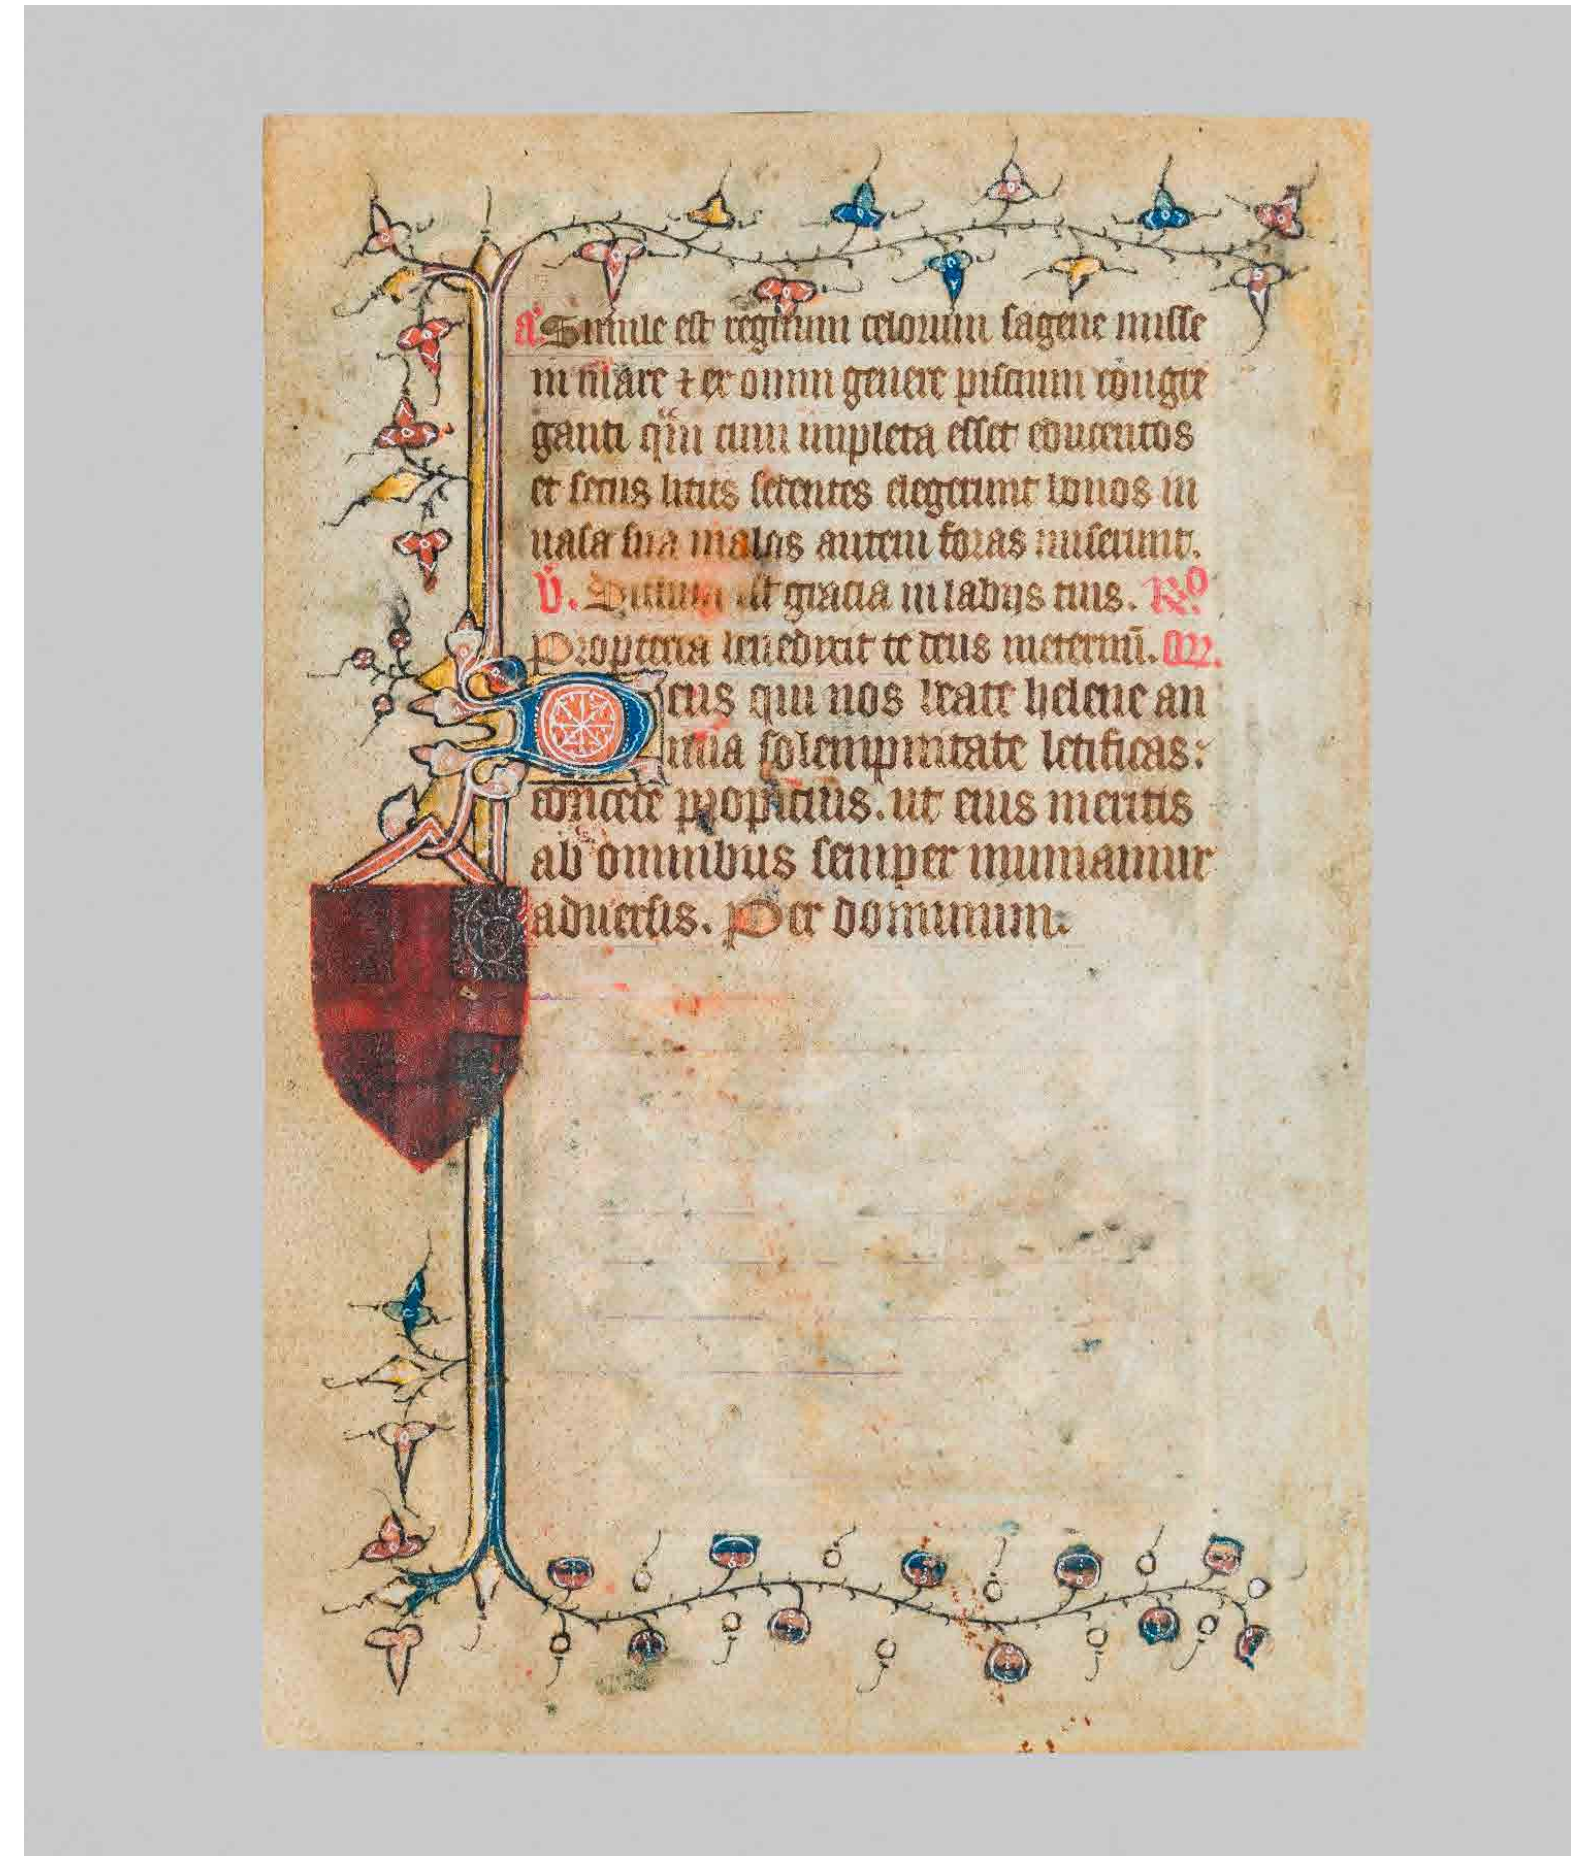 a Simile est regnum celorum sagene misse
in mare ⁊ ex omni genere piscium congre
ganti q̄m cum impleta esset educentes
et secus litus sedentes elegerunt bonos in
uasa sua malos autem foras miserunt.
V̄. Diffusa est gracia in labijs tuis. Ro
Propterea benedixit te deus ineternū. Or.
Deus qui nos beate helene an
nua solempnitate letificas:
concede propicius. ut eius meritis
ab omnibus semper muniamur
aduersis. Per dominum.